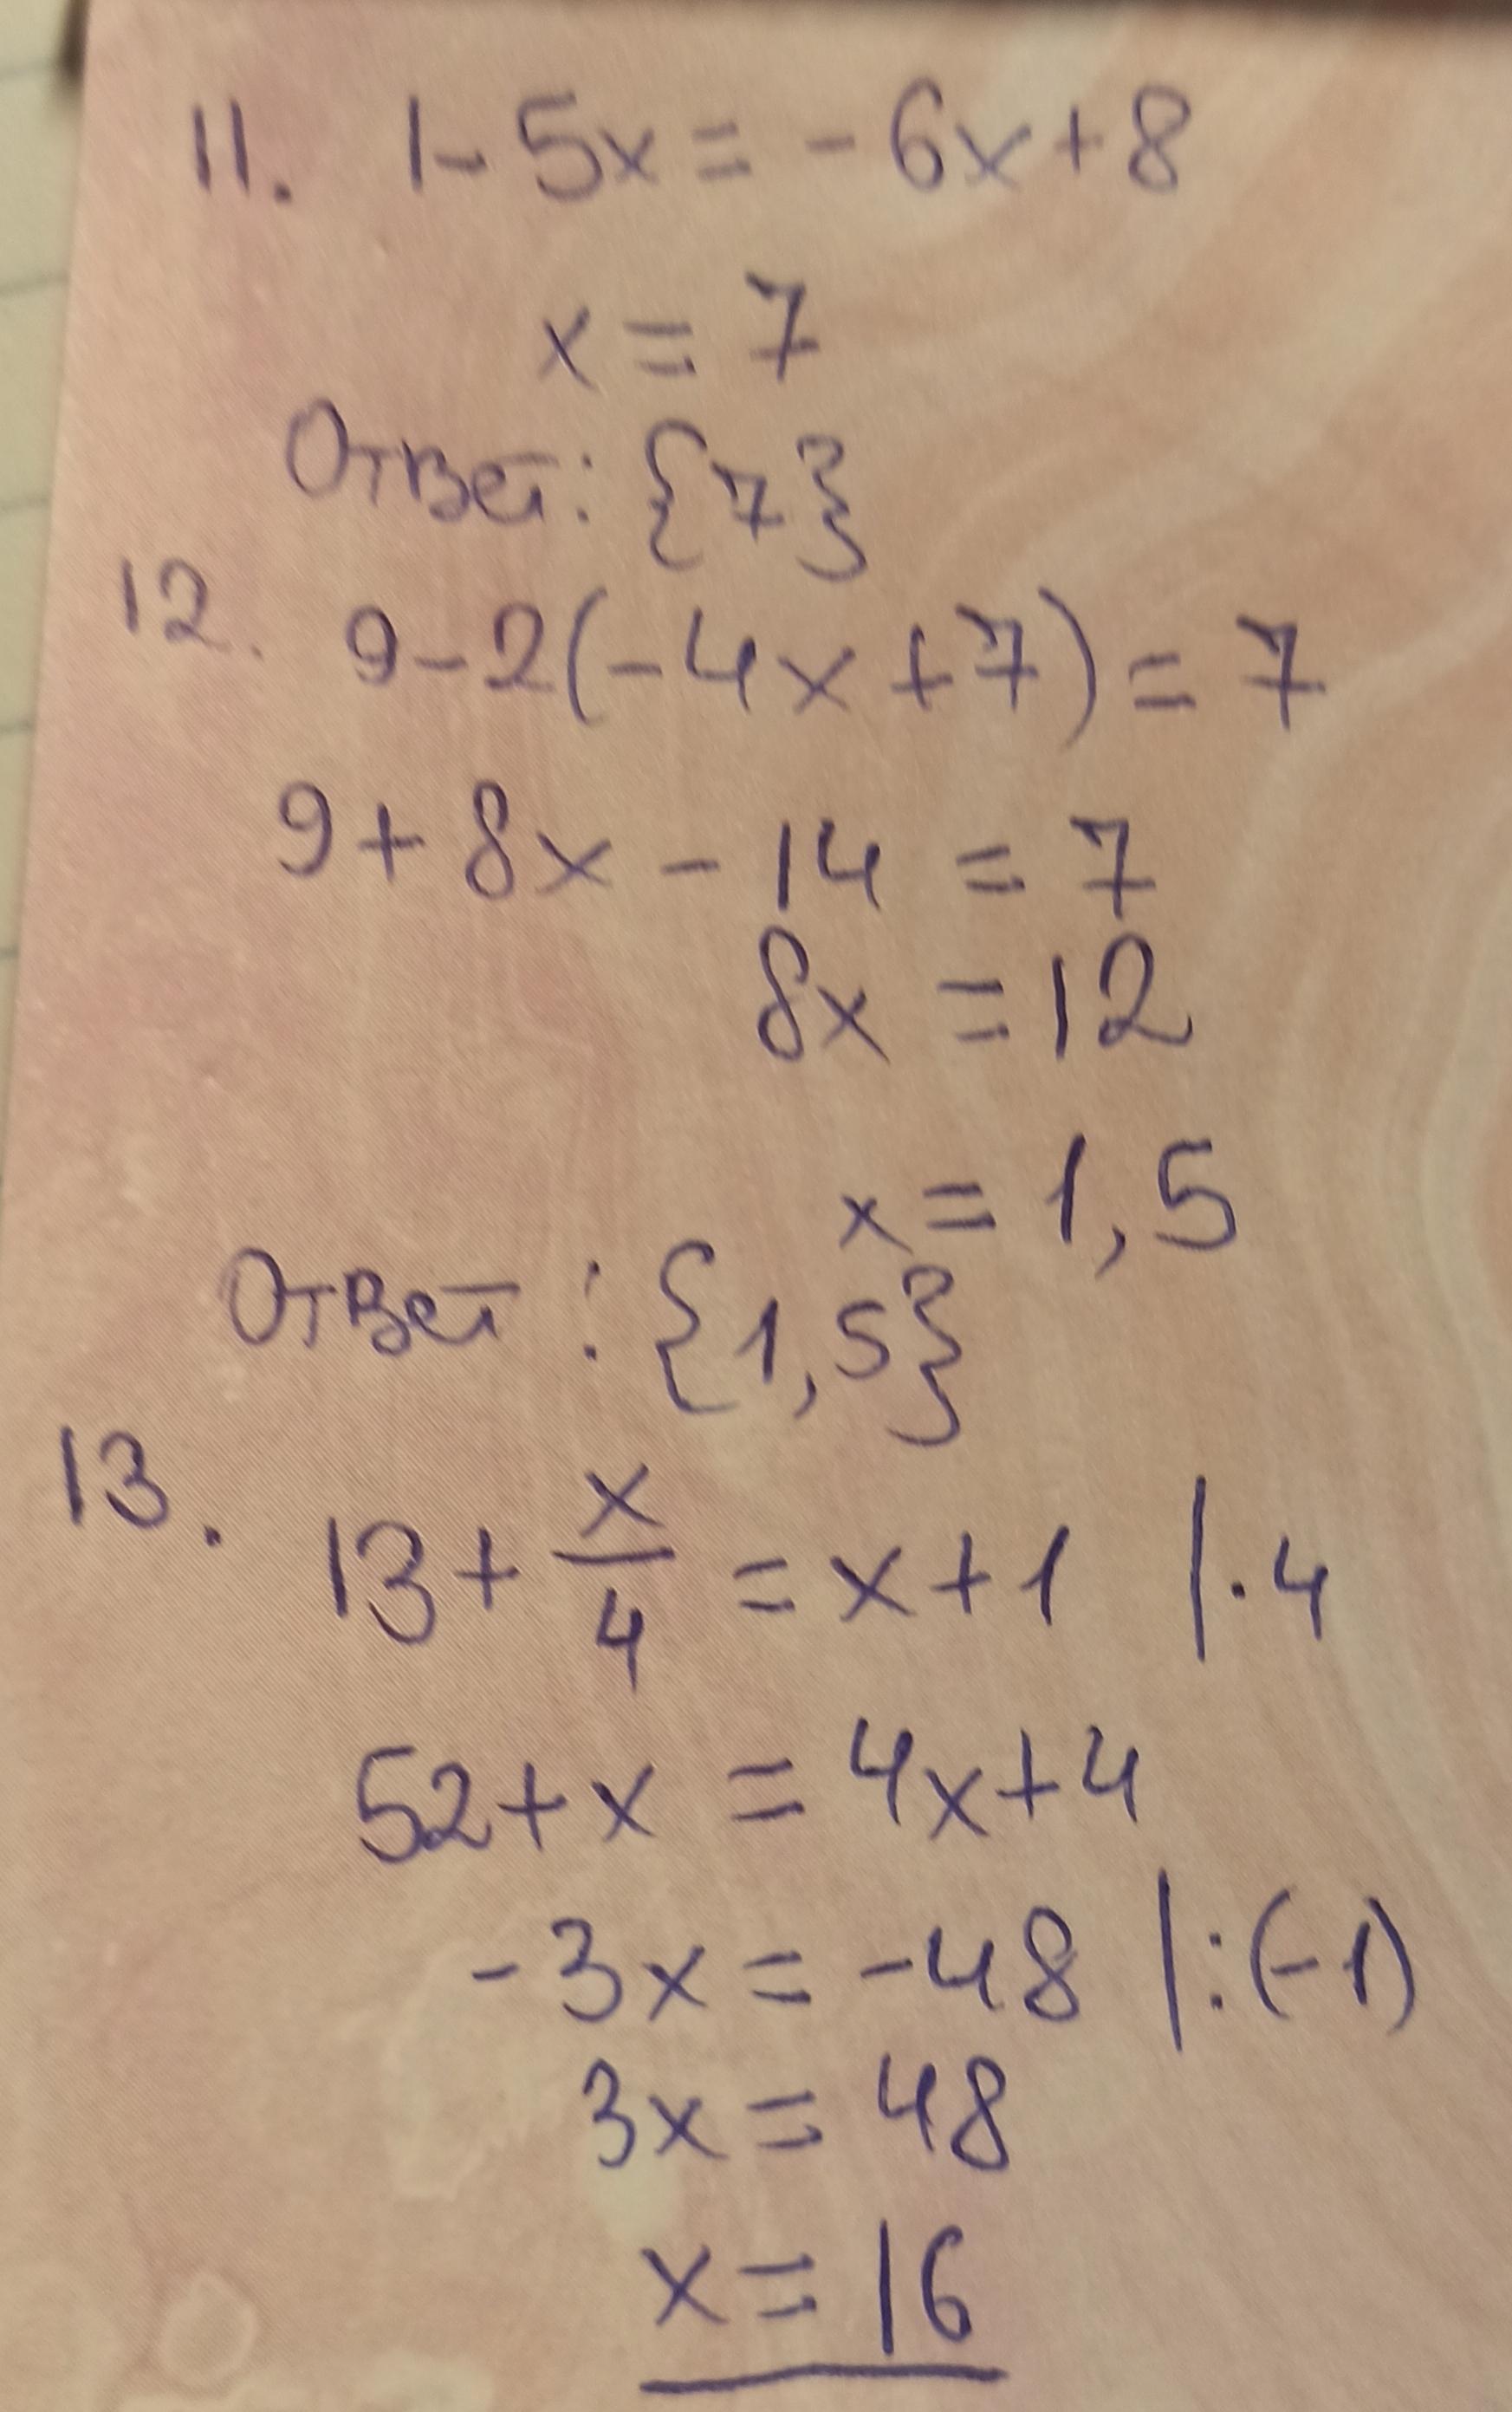 11. 1-5x=-6x+8
x=7
Ответ: {7}
12. 9-2(-4x+7)=7
9+8x-14=7
8x=12
x=1,5
Ответ: {1,5}
13. 13+x/4=x+1 |·4
52+x=4x+4
-3x=-48 |:(-1)
3x=48
x=16